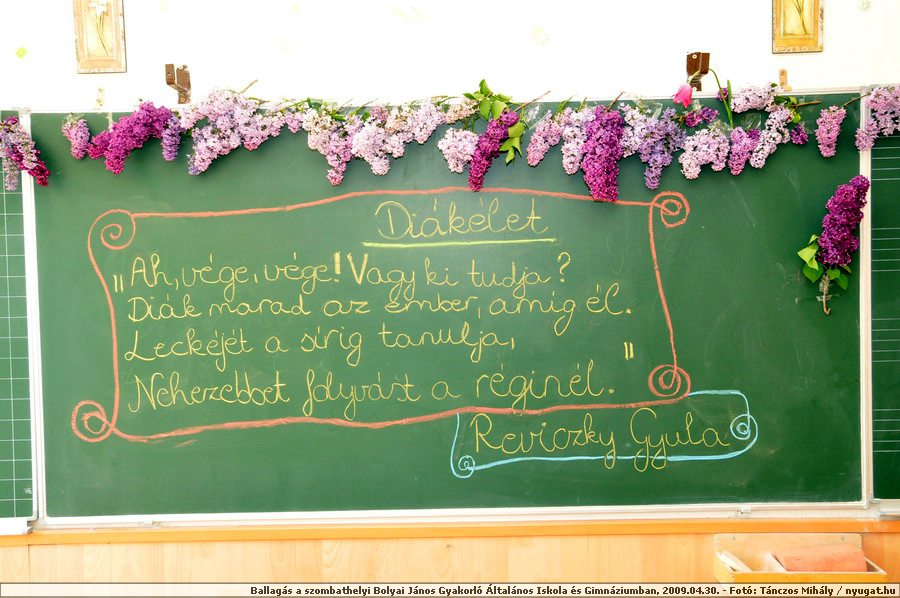 Diákélet
"Ah, vége, vége! Vagy ki tudja?
Diák marad az ember, amig él.
Leckéjét a sírig tanulja,
Nehezebbet folyvást a réginél."
Reviczky Gyula
Ballagás a szombathelyi Bolyai János Gyakorló Általános Iskola és Gimnáziumban, 2009.04.30. - Fotó: Tánczos Mihály / nyugat.hu